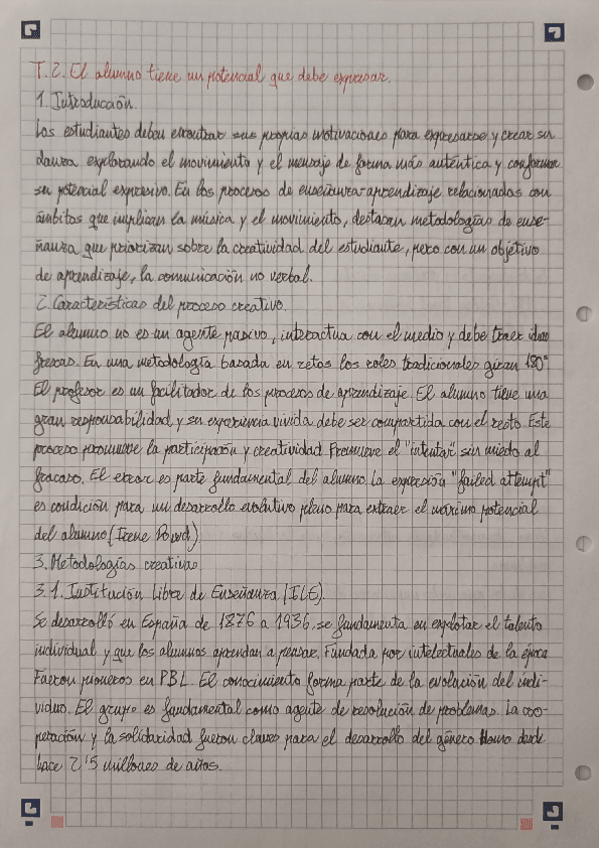 T.2. El alumno tiene un potencial que debe expresar.
1. Introducción.
Los estudiantes deben encontrar sus propias motivaciones para expresarse y crear su
danza explorando el movimiento y el mensaje de forma más auténtica y conformar
su potencial expresivo. En los procesos de enseñanza-aprendizaje relacionadas con
ámbitos que implican la música y el movimiento, destacan metodologías de ense-
ñanza que priorizan sobre la creatividad del estudiante, pero con un objetivo
de aprendizaje, la comunicación no verbal.
2. Características del proceso creativo.
El alumno no es un agente pasivo, interactua con el medio y debe traer ideas
frescas. En una metodología basada en retos los roles tradicionales giran 180°.
El profesor es un facilitador de los procesos de aprendizaje. El alumno tiene una
gran responsabilidad y su experiencia vivida debe ser compartida con el resto. Este
proceso promueve la participación y creatividad. Promueve el "intentar" sin miedo al
fracaso. El error es parte fundamental del alumno. La expresión "failed attempt"
es condición para un desarrollo evolutivo pleno para extraer el máximo potencial
del alumno (Irene
3. Metodologías creativas
3.1. Institución Libre de Enseñanza (ILE).
Se desarrolló en España de 1876 a 1936. se fundamenta en explotar el talento
individual y que los alumnos aprendan a pensar. Fundada por intelectuales de la época
Fueron pioneros en PBL. El conocimiento forma parte de la evolución del indi-
viduo. El grupo es fundamental como agente de resolución de problemas. La coo-
peración y la solidaridad fueron claves para el desarrollo del género Homo desde
hace 2'5 millones de años.